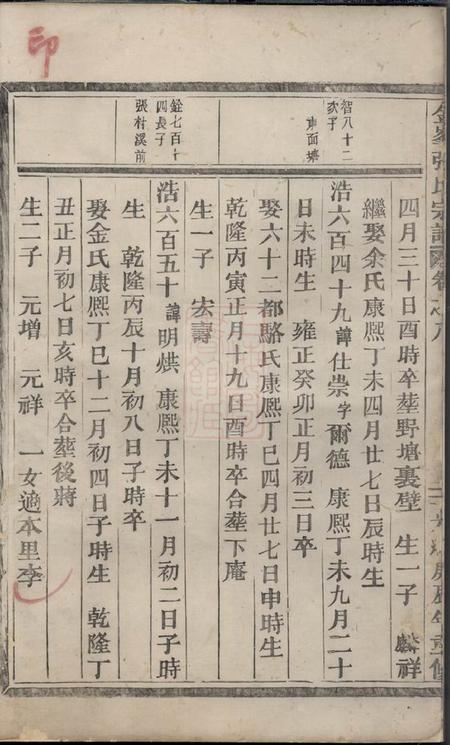 四月三十日酉時卒塟野塘裏壁 生一子 麟祥
繼娶余氏康熙丁未四月廿七日辰時生
智八十二
次子
浩六百四十九諱仕崇字爾德 康熙丁未九月二十
日未時生 雍正癸卯正月初三日卒
東面塘
娶六十二都駱氏康熙丁巳四月廿七日申時生
乾隆丙寅正月十九日酉時卒合塟下庵
生一子 宏壽
銓七百十
四長子
張村溪前
浩六百五十諱明烘 康熙丁未十一月初二日子時
生 乾隆丙辰十月初八日子時卒
娶金氏康熙丁巳十二月初四日子時生 乾隆丁
丑正月初七日亥時卒合塟後蔣
生二子 元增 元祥 一女適本里李
印